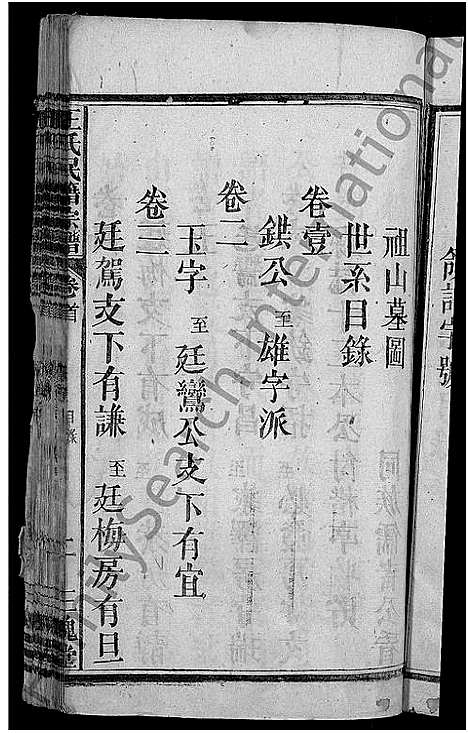 領譜字號
祖山墓圖
世系目錄
卷壹
鉷公至雄字派
卷二
玉字至廷鸞公支下有宜
卷三
廷駕支下有謙至廷梅房有旦
王氏民籍宗譜 卷首 目錄 二 三槐堂
UnitySearch International